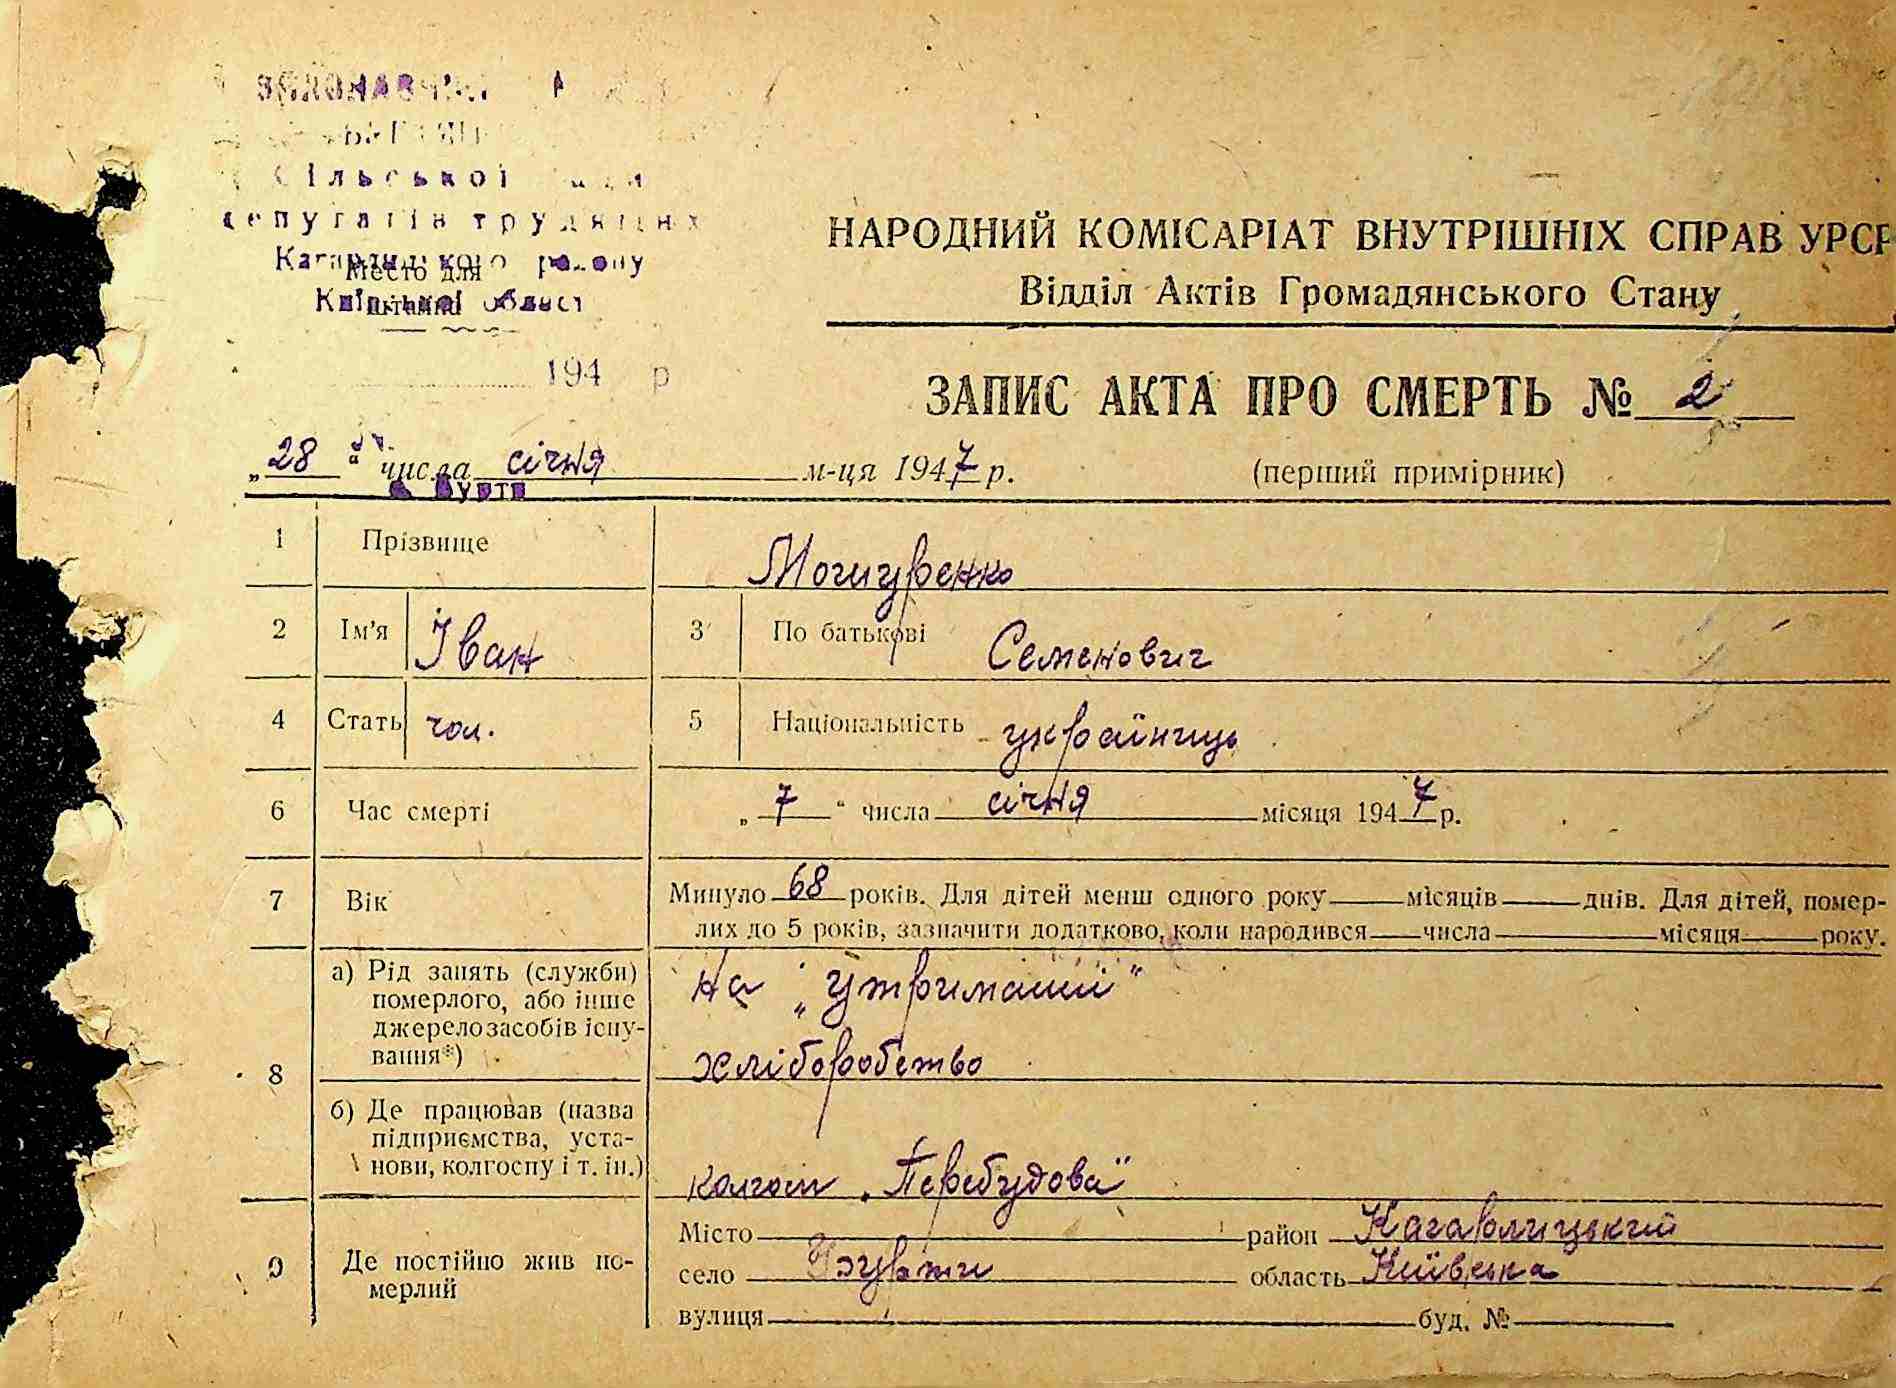 Сільської
депутатів трудящих
Кагарлицького району
Місто для
штампа
Київської області
194 р
НАРОДНИЙ КОМІСАРІАТ ВНУТРІШНІХ СПРАВ УРСР
Відділ Актів Громадянського Стану
ЗАПИС АКТА ПРО СМЕРТЬ № 2
„28“ числа січня м-ця 1947 р.
(перший примірник)
1 Прізвище
2 Ім'я Іван 3 По батькові Семенович
4 Стать чол. 5 Національність українець
6 Час смерті „7“ числа січня місяця 1947 р.
7 Вік Минуло 68 років. Для дітей менш одного року місяців днів. Для дітей, помер-
лих до 5 років, зазначити додатково, коли народився числа місяця року.
8 а) Рід занять (служби)
померлого, або інше
джерело засобів існу-
вання*)
на „утриманні“
хліборобство
б) Де працював (назва
підприємства, уста-
нови, колгоспу і т. ін.)
колгосп „Перебудова“
9 Де постійно жив по-
мерлий
Місто район Кагарлицький
село область Київська
вулиця буд. №